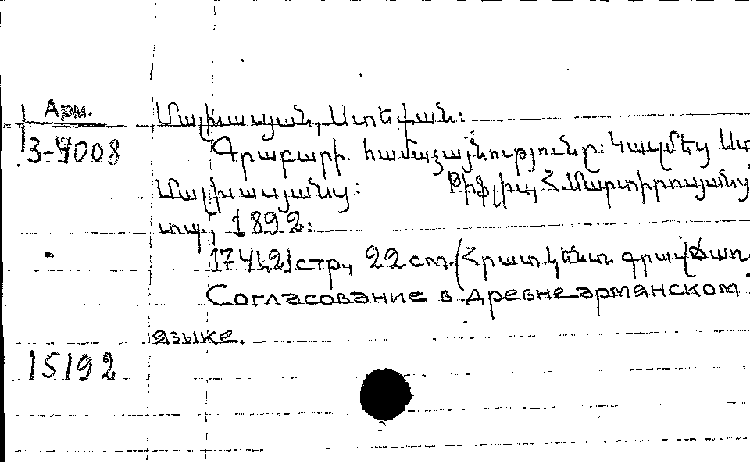 Арм.
Մալխասյան, Ստեփան:
3-4008
Գրաբարի համաձայնությունը: Կազմեց Ստ
Մալխասյանց: Թիֆլիս, Հ. Մարտիրոսյանց
տպ., 1892:
174[2] стр., 22 см. (Հրատ.
Согласование в древнеармянском
языке.
15192